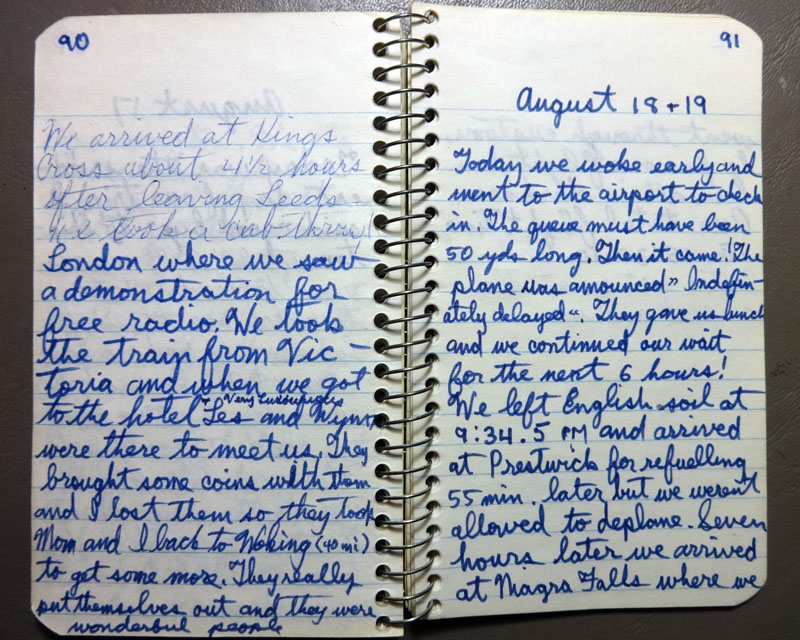 90
We arrived at Kings
Cross about 4 1/2 hours
after leaving Leeds
We took a cab thru
London where we saw
a demonstration for
free radio. We took
the train from Vic-
toria and when we got
Very Luxourigous
to the hotel Les and Wynn
were there to meet us. They
brought some coins with them
and I lost them so they took
Mom and I back to Woking (40 mi)
to get some more. They really
put themselves out and they were
wonderbul people
91
August 18 + 19
Today we woke early and
went to the airport to check
in. The queue must have been
50 yds long. Then it came! The
plane was announced " Indefin-
ately delayed ". They gave us lunch
and we continued our wait
for the next 6 hours!
We left English soil at
9:34.5 PM and arrived
at Prestwick for refuelling
55 min. later but we weren't
allowed to deplane. Seven
hours later we arrived
at Niagra Falls where we